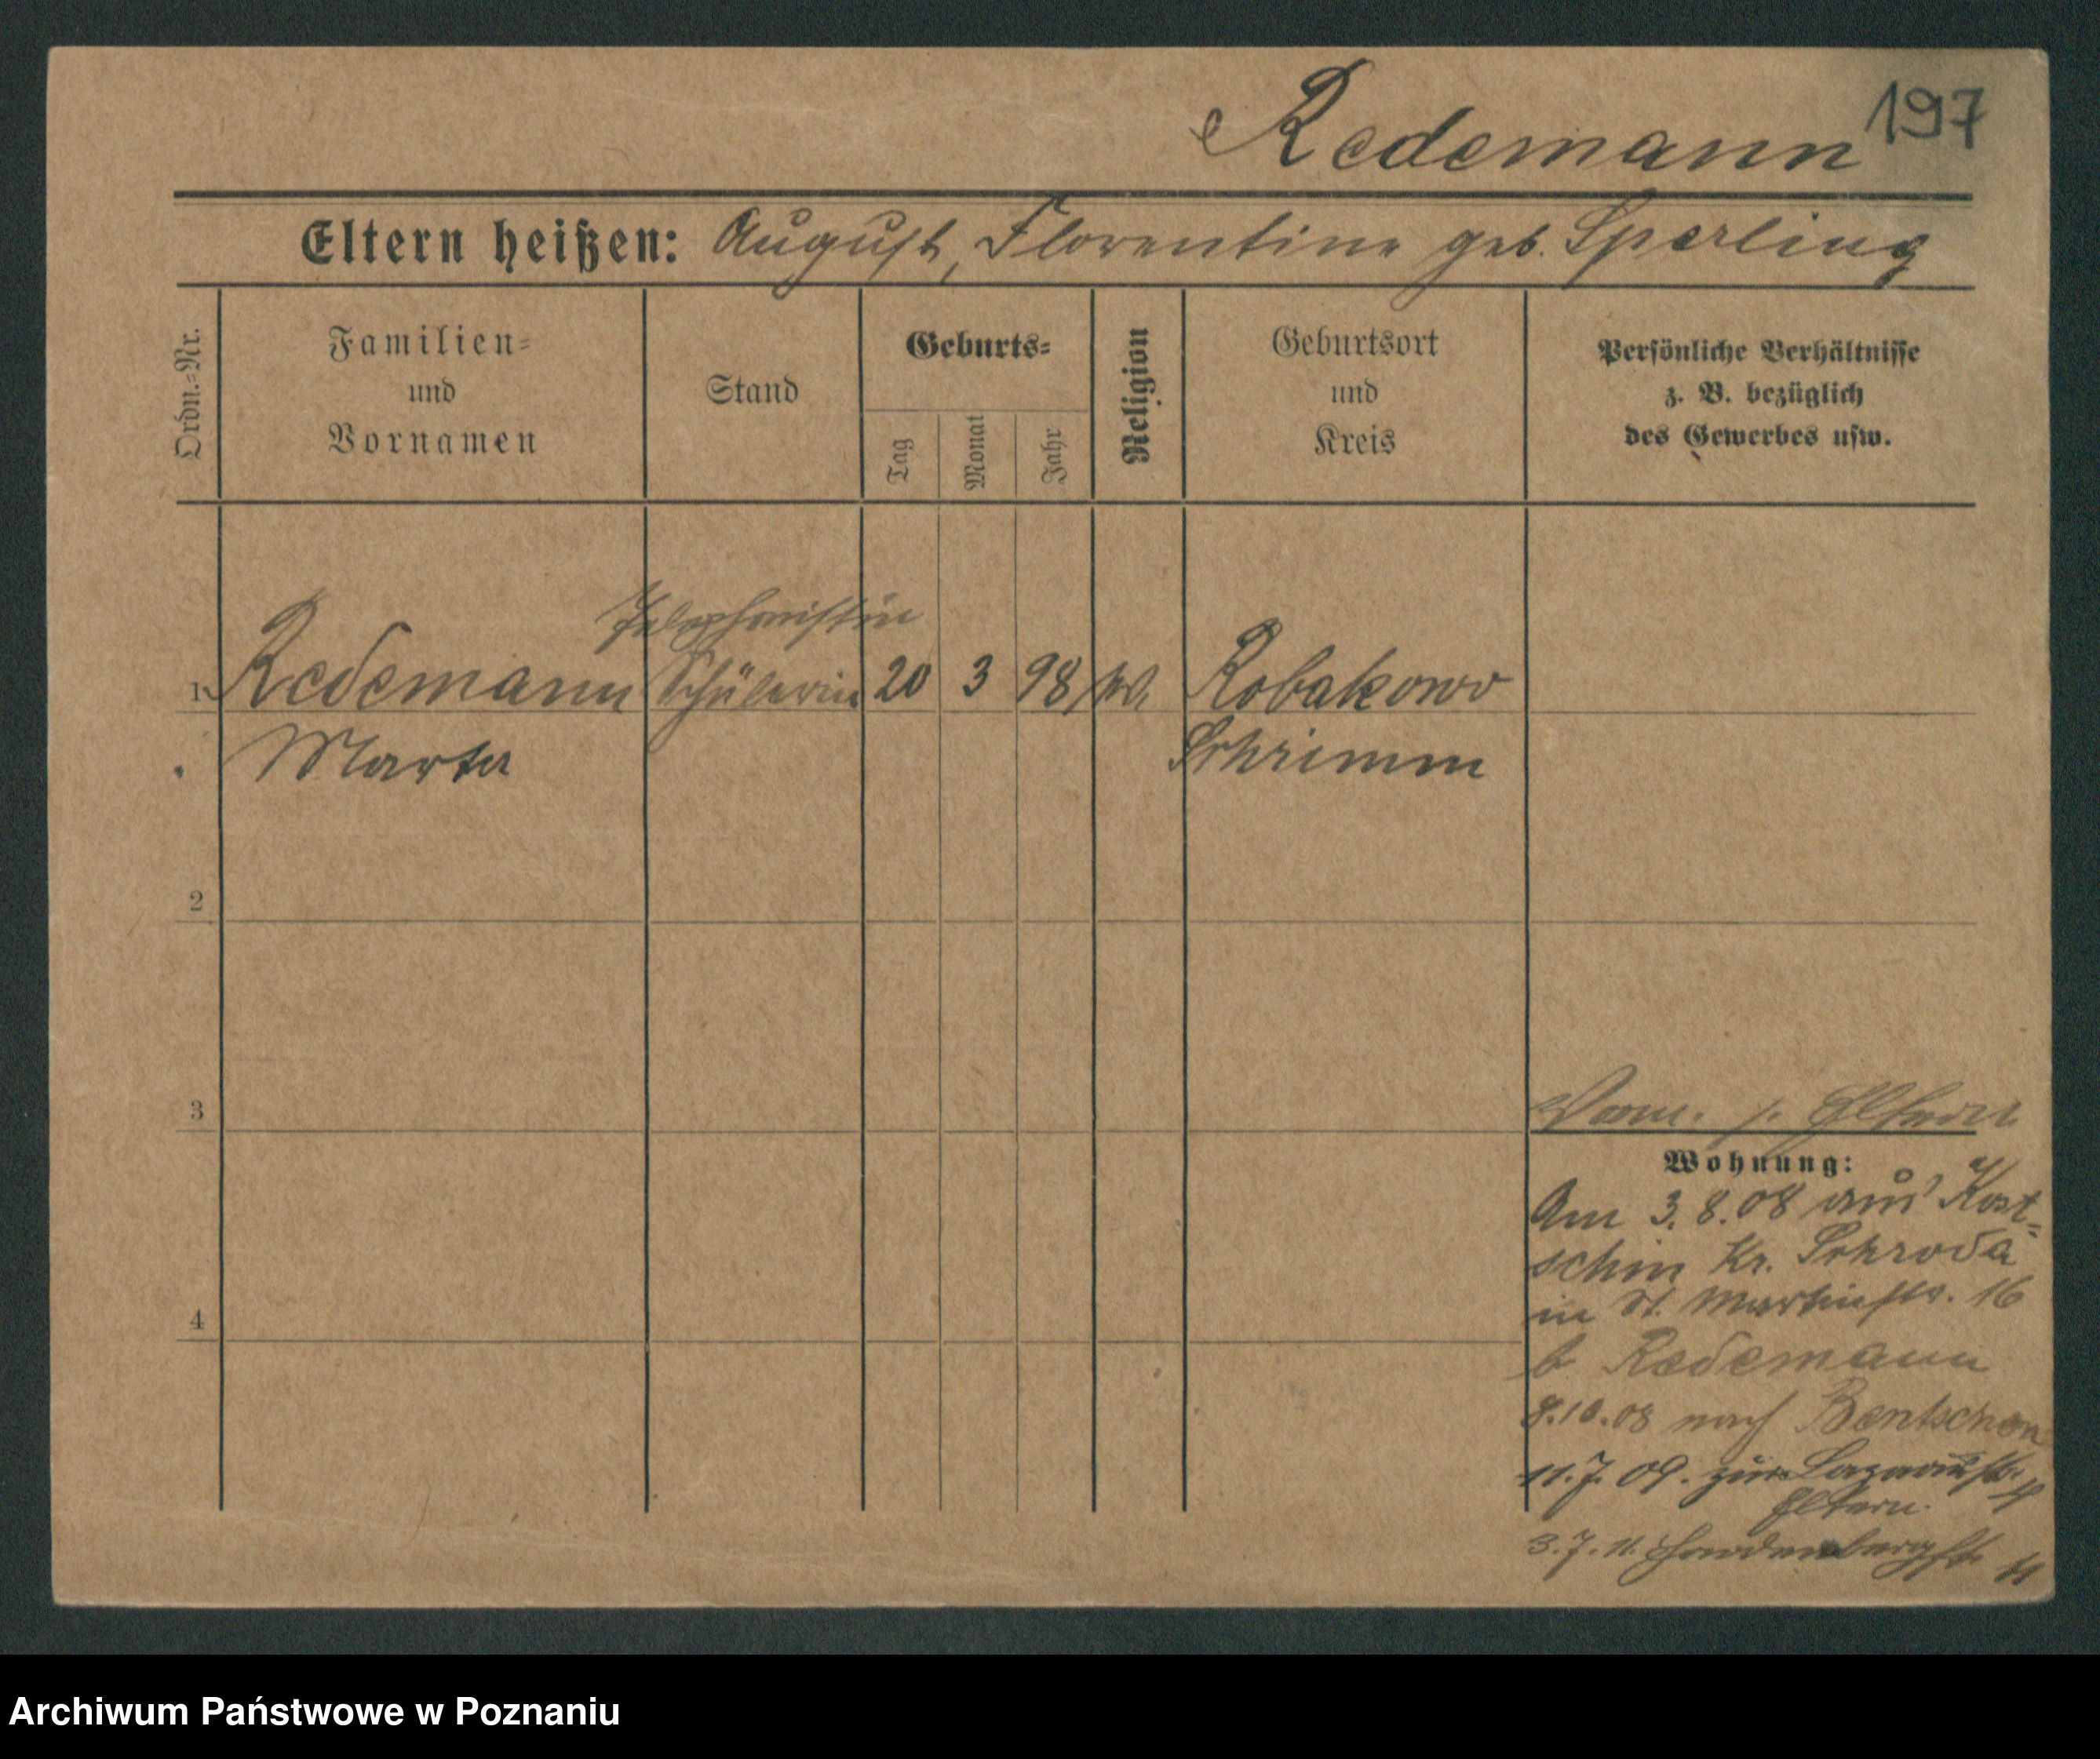 197
Redemann
Eltern heißen: August, Florentine geb. Sperling
Ordn.-Nr.
Familien-
und
Vornamen
Stand
Geburts-
Tag
Monat
Jahr
Religion
Geburtsort
und
Kreis
Persönliche Verhältnisse
z. B. bezüglich
des Gewerbes usw.
Telephonistin
1 Redemann Schülerin 20 3 98 Robakowo
Marta Schrimm
2
3
Vorm. s. Eltern
Wohnung:
Am 3.8.08 aus Kost-
schin Kr. Schroda
in St. Martinstr. 16
b Redemann
8.10.08 nach Bentschen
11.7.09. zur
Eltern
3.7.11.
4
Archiwum Państwowe w Poznaniu